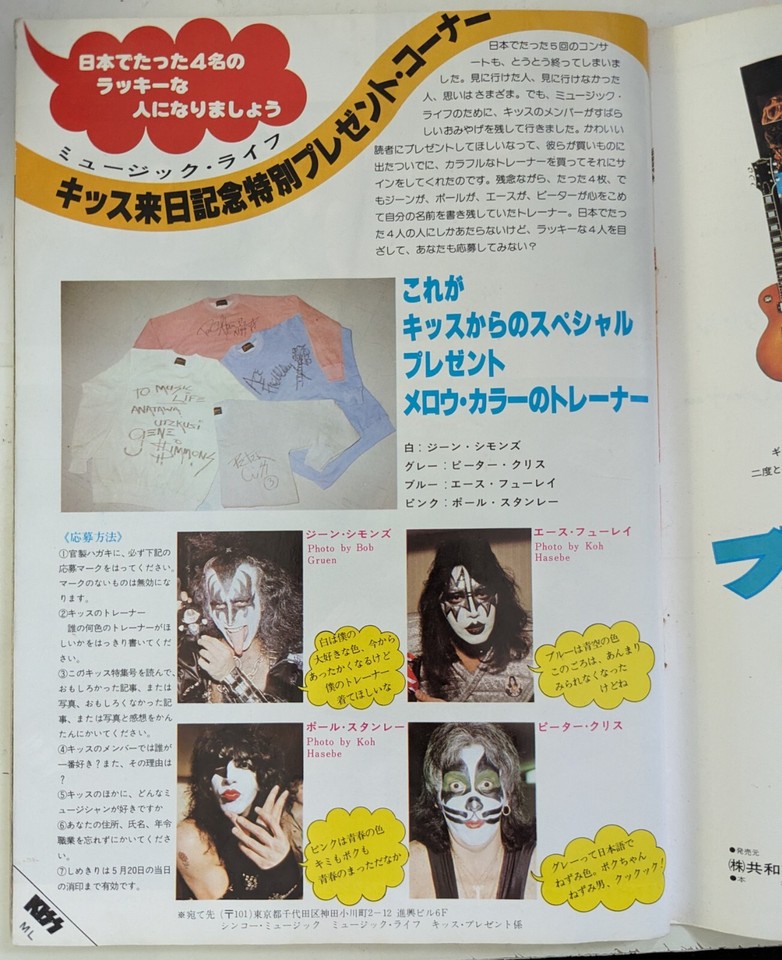 日本でたった4名の
ラッキーな
人になりましょう
ミュージック・ライフ
キッス来日記念特別プレゼント・コーナー
日本でたった5回のコンサ
ートも、とうとう終ってしまいま
した。見に行けた人、見に行けなかった
人、思いはさまざま。でも、ミュージック・
ライフのために、キッスのメンバーがすばら
しいおみやげを残して行きました。かわいい
読者にプレゼントしてほしいなって、彼らが買いものに
出たついでに、カラフルなトレーナーを買ってそれにサ
インをしてくれたのです。残念ながら、たった4枚、で
もジーンが、ポールが、エースが、ピーターが心をこめ
て自分の名前を書き残していたトレーナー。日本でたっ
た4人の人にしかあたらないけど、ラッキーな4人を目
ざして、あなたも応募してみない?
これが
キッスからのスペシャル
プレゼント
メロウ・カラーのトレーナー
TO MUSIC
LIFE
ANATAWA
UTZKUSI
GENE
SIMMONS
白:ジーン・シモンズ
グレー:ピーター・クリス
ブルー:エース・フューレイ
ピンク:ポール・スタンレー
《応募方法》
①官製ハガキに、必ず下記の
応募マークをはってください。
マークのないものは無効にな
ります。
②キッスのトレーナー
誰の何色のトレーナーがほ
しいかをはっきり書いてくだ
さい。
③このキッス特集号を読んで、
おもしろかった記事、または
写真、おもしろくなかった記
事、または写真と感想をかん
たんにかいてください。
④キッスのメンバーでは誰が
一番好き?また、その理由は
?
⑤キッスのほかに、どんなミ
ュージシャンが好きですか
⑥あなたの住所、氏名、年令
職業を忘れずにかいてくださ
い。
⑦しめきりは5月20日の当日
の消印まで有効です。
ジーン・シモンズ
Photo by Bob
Gruen
白は僕の
大好きな色、今から
あったかくなるけど
僕のトレーナー
着てほしいな
エース・フューレイ
Photo by Koh
Hasebe
ブルーは青空の色
このごろは、あんまり
みられなくなった
けどね
ポール・スタンレー
Photo by Koh
Hasebe
ピンクは青春の色
キミもボクも
青春のまっただなか
ピーター・クリス
グレーって日本語で
ねずみ色。ボクちゃん
ねずみ男、クックック!
KISS
ML
※宛て先 (〒101)東京都千代田区神田小川町2-12 進興ビル6F
シンコー・ミュージック ミュージック・ライフ キッス・プレゼント係
ギ
二度と
●発売元
㈱共和
●本